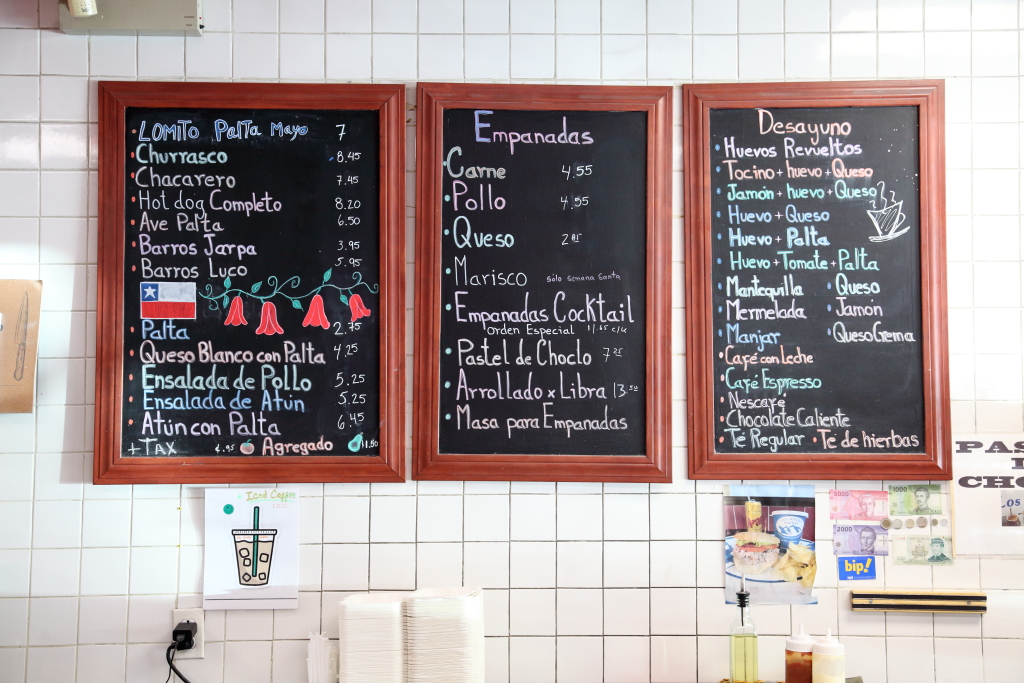 LOMITO Palta Mayo 7
Churrasco 8.45
Chacarero 7.45
Hot dog Completo 8.20
Ave Palta 6.50
Barros Jarpa 3.95
Barros Luco 5.95
Palta 2.75
Queso Blanco con Palta 4.25
Ensalada de Pollo 5.25
Ensalada de Atún 5.25
Atún con Palta 6.45
+ TAX Agregado
Empanadas
Carne 4.55
Pollo 4.55
Queso
Marisco Sólo Semana Santa
Empanadas Cocktail
Orden Especial
Pastel de Choclo
Arrollado x Libra
Masa para Empanadas
Desayuno
Huevos Revueltos
Tocino + huevo + Queso
Jamón + huevo + Queso
Huevo + Queso
Huevo + Palta
Huevo + Tomate + Palta
Mantequilla Queso
Mermelada Jamón
Manjar Queso Crema
Café con Leche
Café Espresso
Nescafé
Chocolate Caliente
Té Regular Té de hierbas
Iced Coffee
5000
1000
2000
bip!